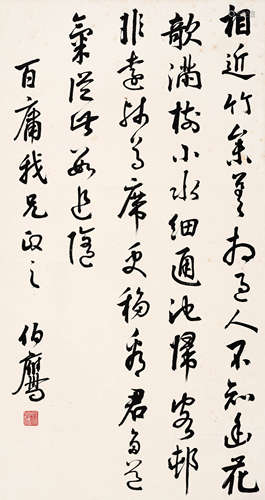 相近竹參差相過人不知幽花
欹滿樹小水細通池歸客邨
非遠殘尊席更移看君多道
氣從此數追隨
百庸我兄正之
伯鷹